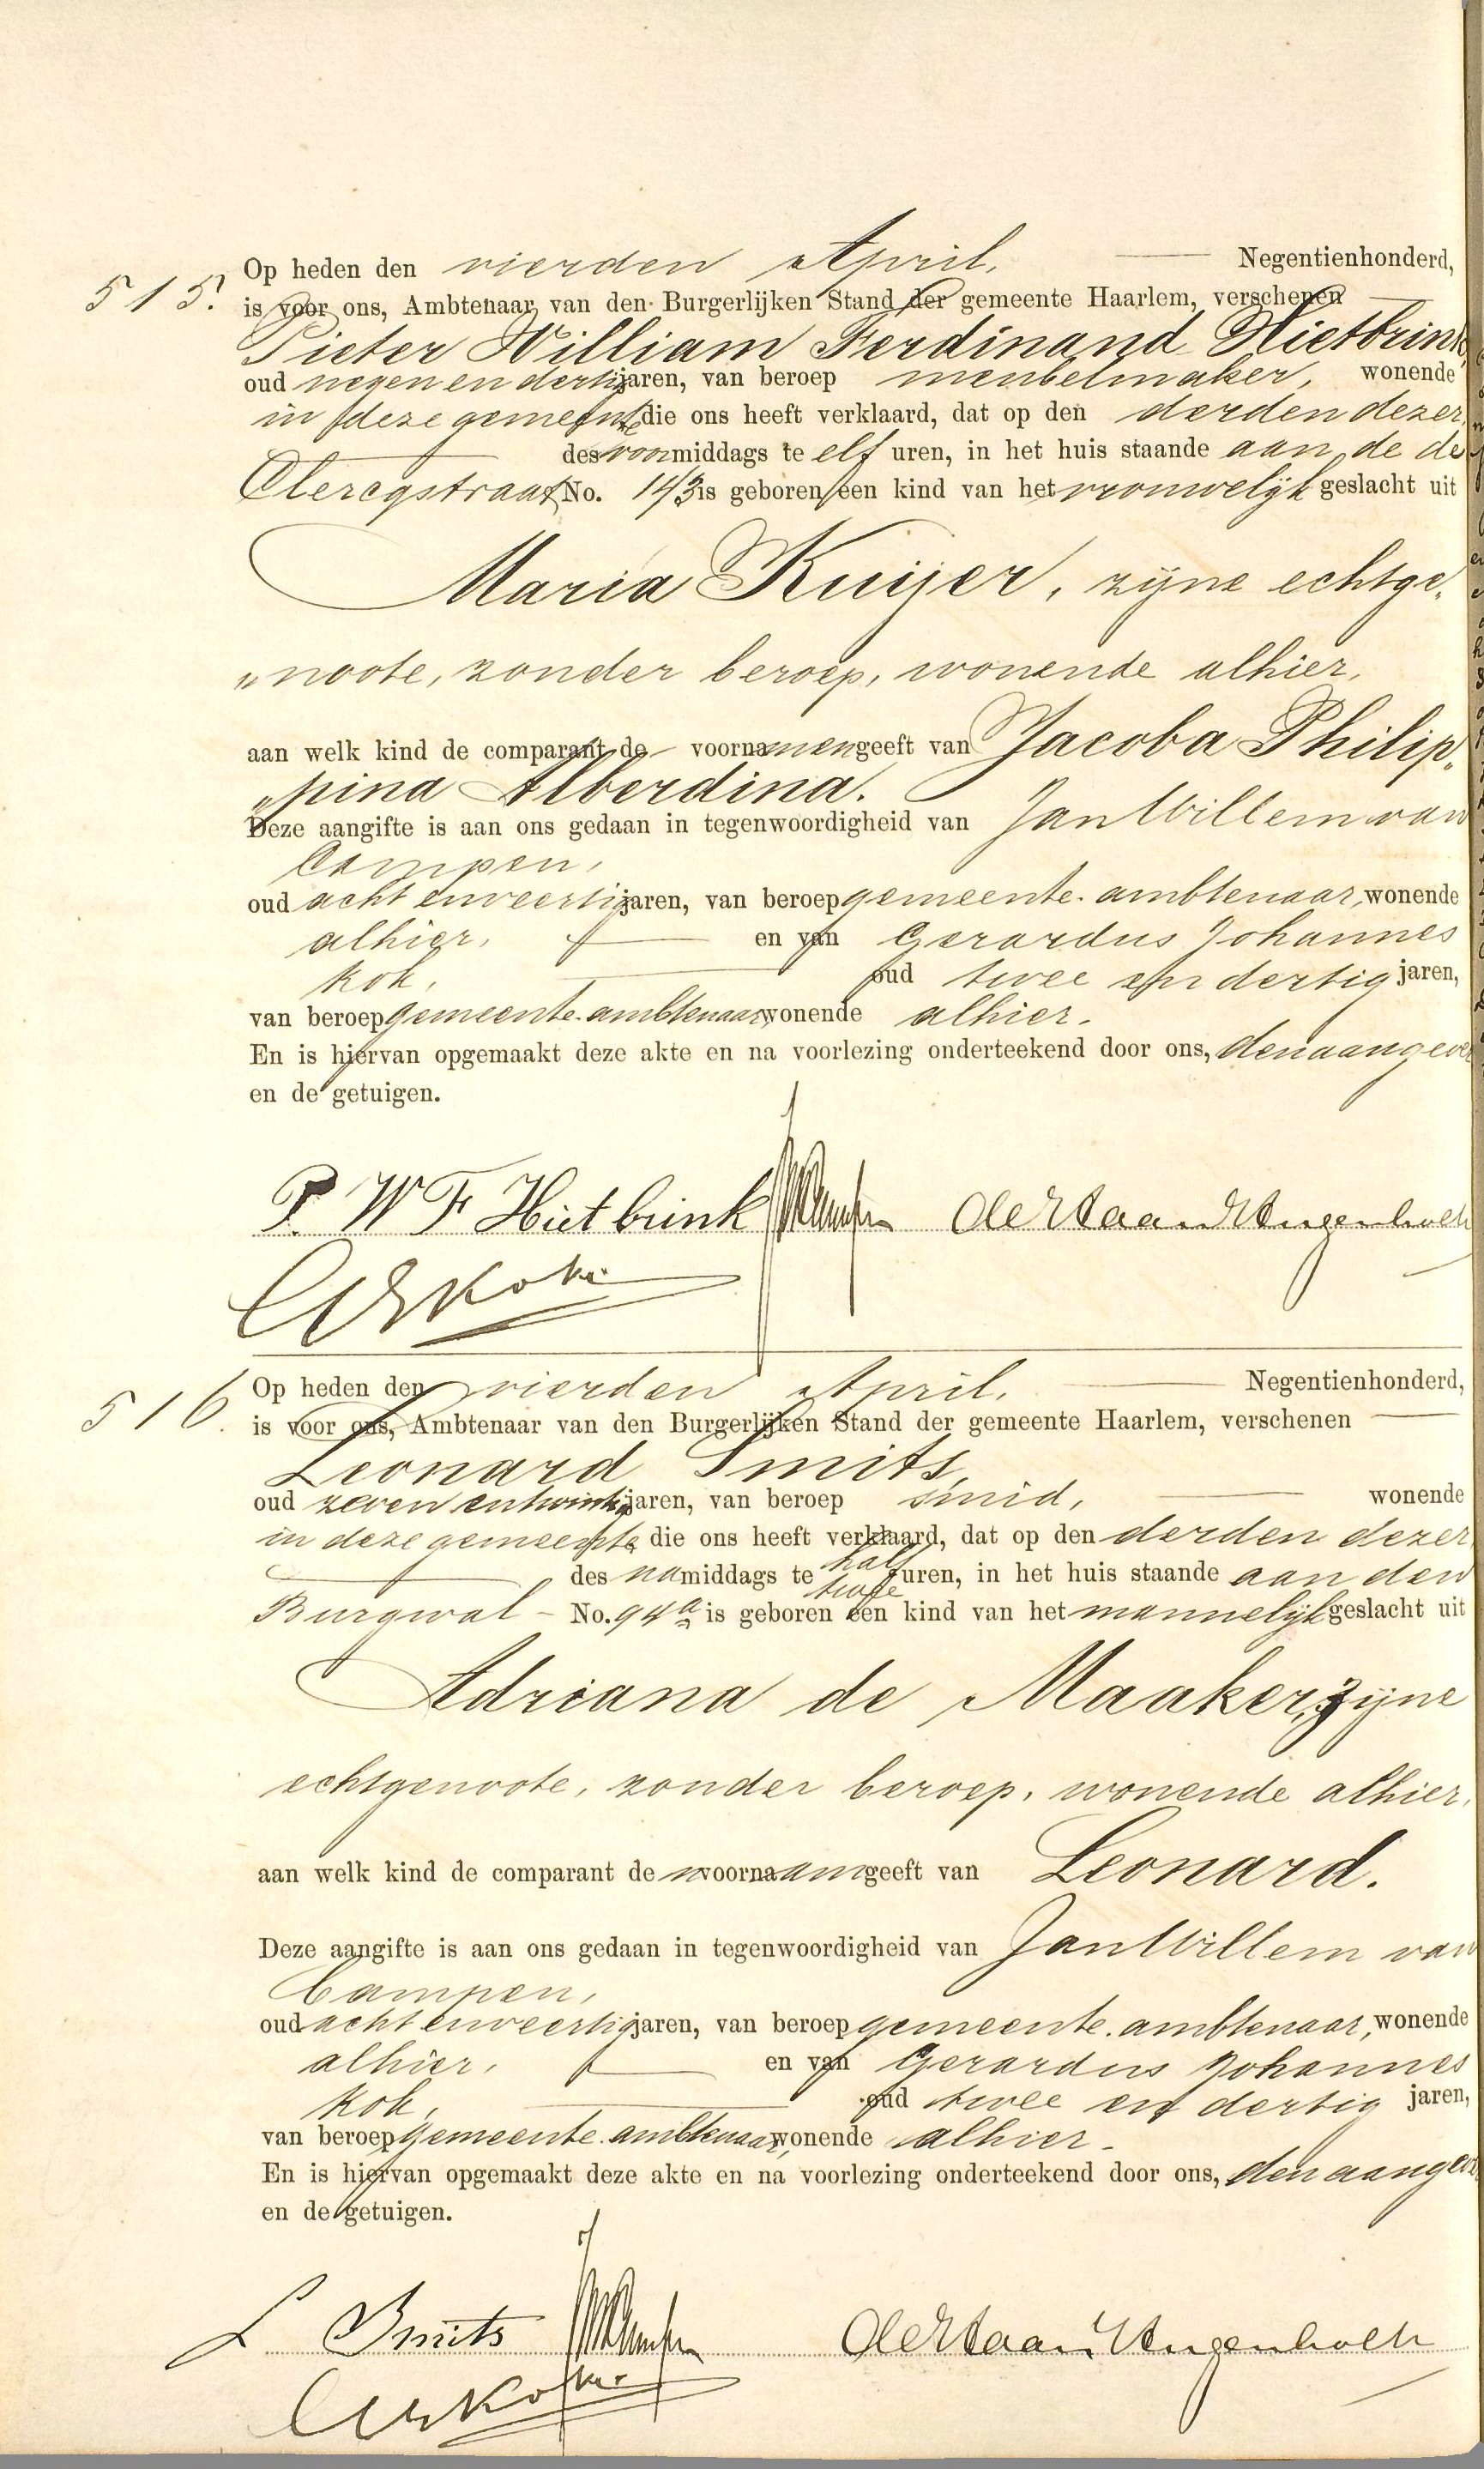 515. Op heden den vierden April, Negentienhonderd,
is voor ons, Ambtenaar van den Burgerlijken Stand der gemeente Haarlem, verschenen
Pieter William Ferdinand Hietbrink
oud negen en dertig jaren, van beroep meubelmaker, wonende
in deze gemeente die ons heeft verklaard, dat op den derden dezer,
des voormiddags te elf uren, in het huis staande aan de de
Clercqstraat No. 143 is geboren een kind van het vrouwelijk geslacht uit
Maria Kuijer, zijne echtge„
„noote, zonder beroep, wonende alhier,
aan welk kind de comparant de voornamen geeft van Jacoba Philip„
„pina Alberdina.
Deze aangifte is aan ons gedaan in tegenwoordigheid van Jan Willem van
Campen,
oud acht en veertig jaren, van beroep gemeente-ambtenaar, wonende
alhier, en van Gerardus Johannes
Kok, oud twee en dertig jaren,
van beroep gemeente-ambtenaar, wonende alhier.
En is hiervan opgemaakt deze akte en na voorlezing onderteekend door ons, den aangever
en de getuigen.
P. W F Hietbrink
GJKok
516. Op heden den vierden April, Negentienhonderd,
is voor ons, Ambtenaar van den Burgerlijken Stand der gemeente Haarlem, verschenen
Leonard Smits,
oud zeven en twintig jaren, van beroep smid, wonende
in deze gemeente die ons heeft verklaard, dat op den derden dezer
des namiddags te half twee uren, in het huis staande aan den
Burgwal No. 94a is geboren een kind van het mannelijk geslacht uit
Adriana de Maaker, zijne
echtgenoote, zonder beroep, wonende alhier,
aan welk kind de comparant den voornaam geeft van Leonard.
Deze aangifte is aan ons gedaan in tegenwoordigheid van Jan Willem van
Campen,
oud acht en veertig jaren, van beroep gemeente-ambtenaar, wonende
alhier, en van Gerardus Johannes
Kok, oud twee en dertig jaren,
van beroep gemeente-ambtenaar, wonende alhier.
En is hiervan opgemaakt deze akte en na voorlezing onderteekend door ons, den aangever
en de getuigen.
L Smits
GJKok